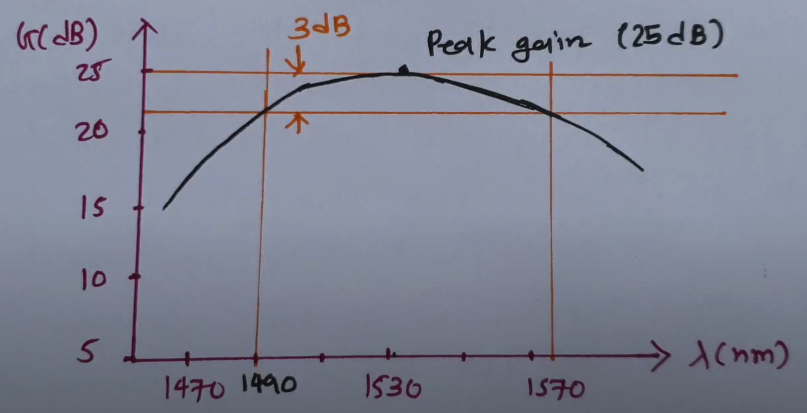 G(dB)
3dB
Peak gain (25dB)
25
20
15
10
5
1470 1490 1530 1570
λ(nm)